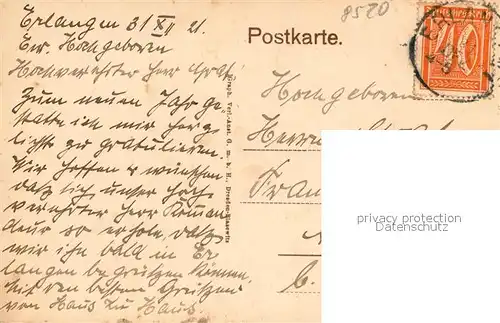 Erlangen 31 XII 21.
Ew. Hochgeboren
Hochverehrter Herr Graf!
Zum neuen Jahr ge-
statte ich mir herz-
lichst zu gratulieren.
Wir hoffen & wünschen
daß sich unser hoch-
verehrter Herr Komman-
deur so erhole, daß
wir ihn bald in Er-
langen begrüßen können.
Mit den besten Grüßen
von Haus zu Haus.
8520
Postkarte.
10
Graph. Verl.-Anst. G. m. b. H., Dresden-Blasewitz
Hochgeboren
Herrn
privacy protection